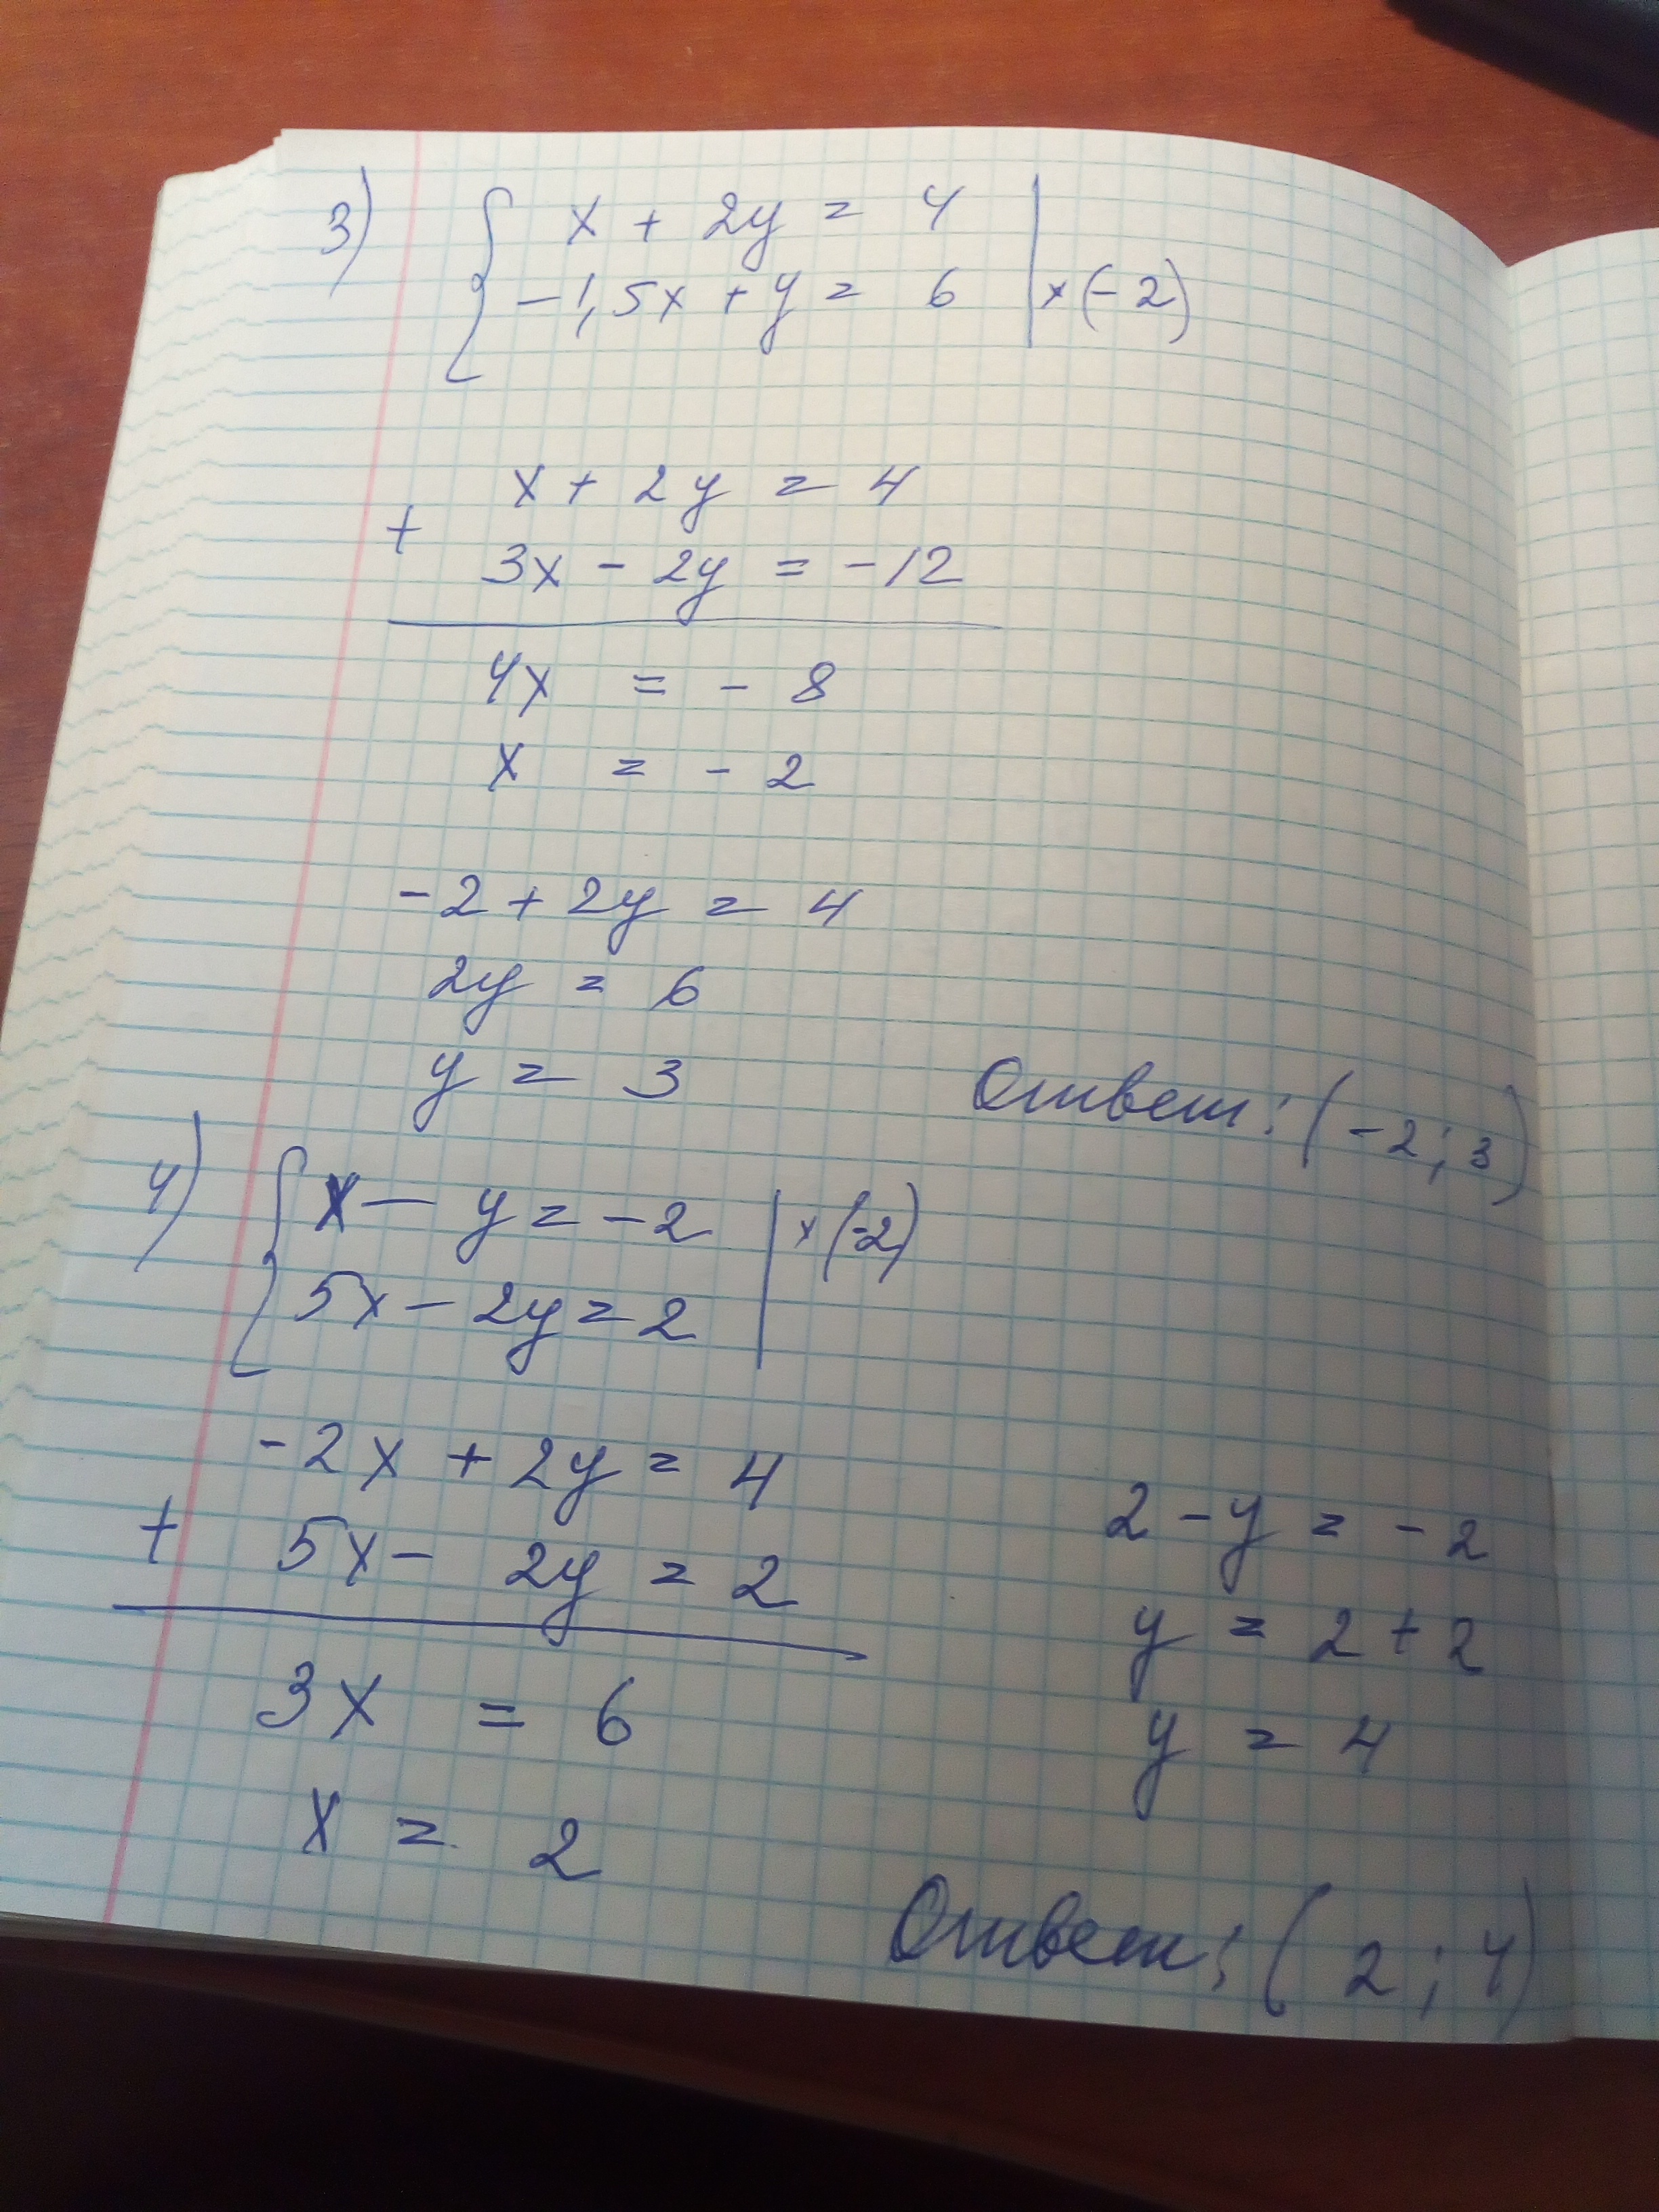 3) { x + 2y = 4
-1,5x + y = 6 | × (-2)
x + 2y = 4
+
3x - 2y = -12
4x = - 8
x = - 2
-2 + 2y = 4
2y = 6
y = 3
Ответ: (-2; 3)
4) { x - y = -2 | × (-2)
5x - 2y = 2
-2x + 2y = 4
+
5x - 2y = 2
3x = 6
x = 2
2 - y = - 2
y = 2 + 2
y = 4
Ответ: (2; 4)